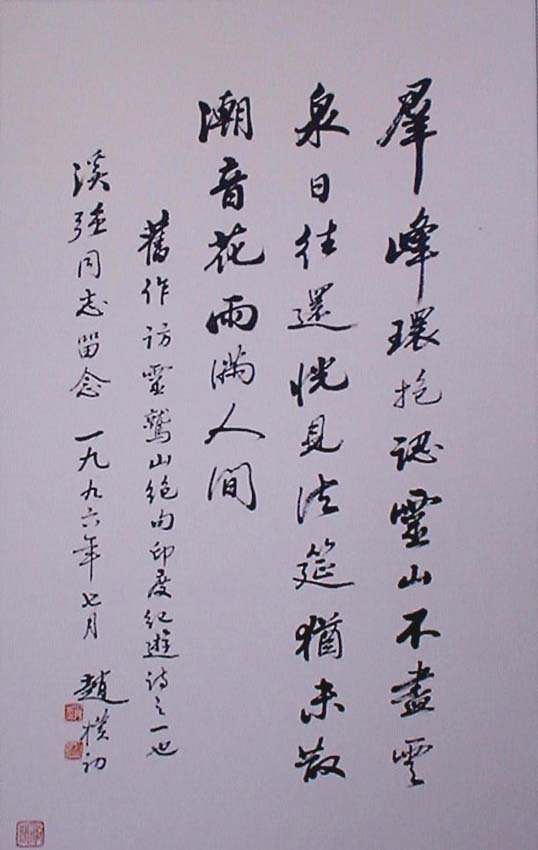 羣峰環抱認靈山不盡雲
泉日往還恍見法筵猶未散
潮音花雨滿人間
舊作訪靈鷲山絕句印度紀遊詩之一也
溪強同志留念 一九九六年七月 趙樸初